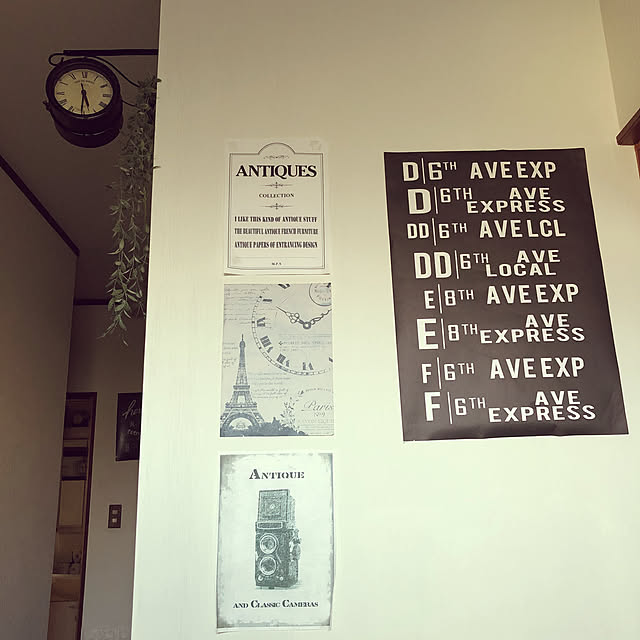 ANTIQUES
COLLECTION
I LIKE THIS KIND OF ANTIQUE STUFF
THE BEAUTIFUL ANTIQUE FRENCH FURNITURE
ANTIQUE PAPERS OF ENTRANCING DESIGN
Paris
ANTIQUE
AND CLASSIC CAMERAS
D|6TH AVE EXP
D|6TH AVE
EXPRESS
DD|6TH AVE LCL
DD|6TH AVE
LOCAL
E|8TH AVE EXP
E|8TH AVE
EXPRESS
F|6TH AVE EXP
F|6TH AVE
EXPRESS